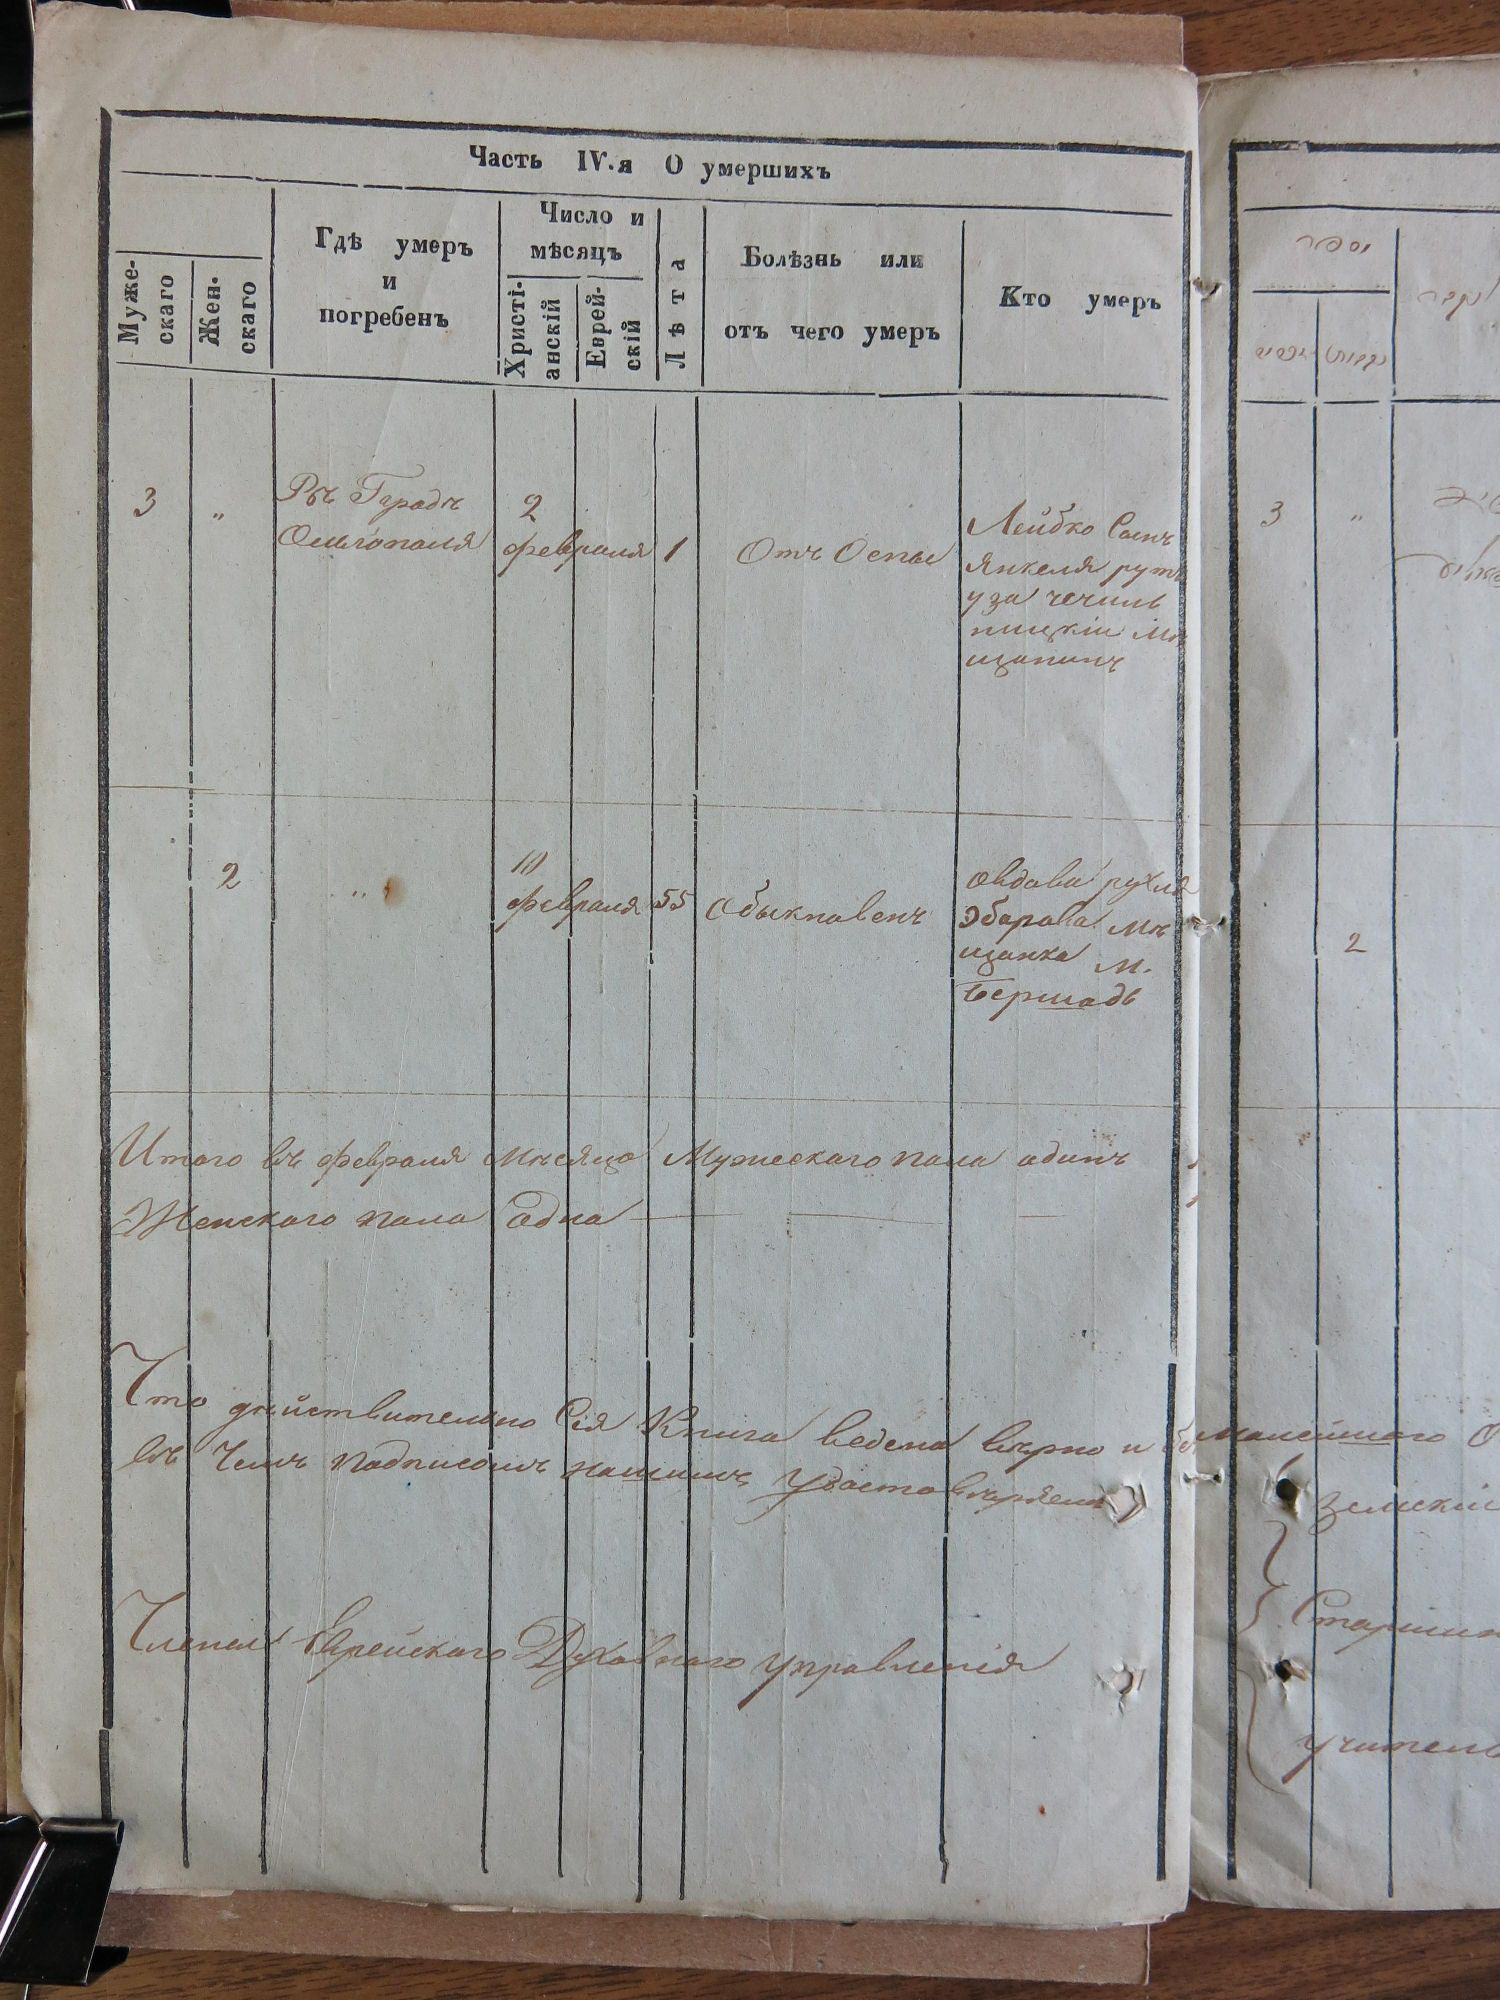 Часть IV.я О умершихъ
Муже-
скаго
Жен-
скаго
Гдѣ умеръ
и
погребенъ
Число и
мѣсяцъ
Христі-
анскій
Еврей-
скій
Лѣта
Болѣзнь или
отъ чего умеръ
Кто умеръ
3 „
Въ Городѣ
Ольгополя
2
февраля
1
Отъ Оспы
Лейбко Сынъ
Янкеля
чечиль
ницкій Мѣ
щанинъ
2
„
10
февраля
55
Обыкновенъ
овдова рухля
Мѣ
щанка М.
Бершадь
Итого въ февраля Мѣсяца Мужескаго пола одинъ 1
Женскаго пола Одна 1
Что дѣйствительно Сія Книга ведена вѣрно и
въ Чемъ подписомъ нашимъ Удостовѣряемъ
Члены Еврейскаго Духовнаго Управленія
מספר
3 „
2
Земскій
Старши
учитель